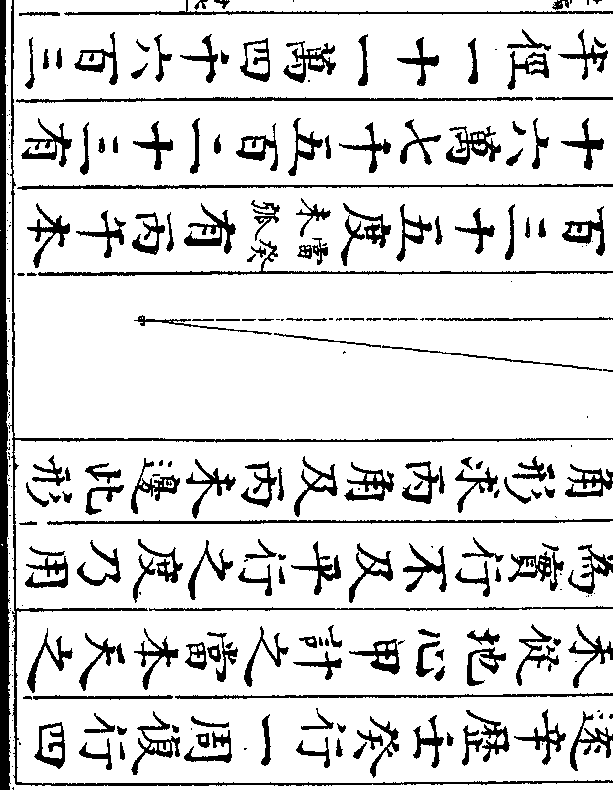 逐辛歷壬癸行一周復行四
未從地心甲計之當本天之
為實行不及平行之度乃用
角形求丙角及丙未邊此形
百三十五度當癸未弧有丙午本
十六萬七千五百二十三有
半徑一十一萬四千六百三